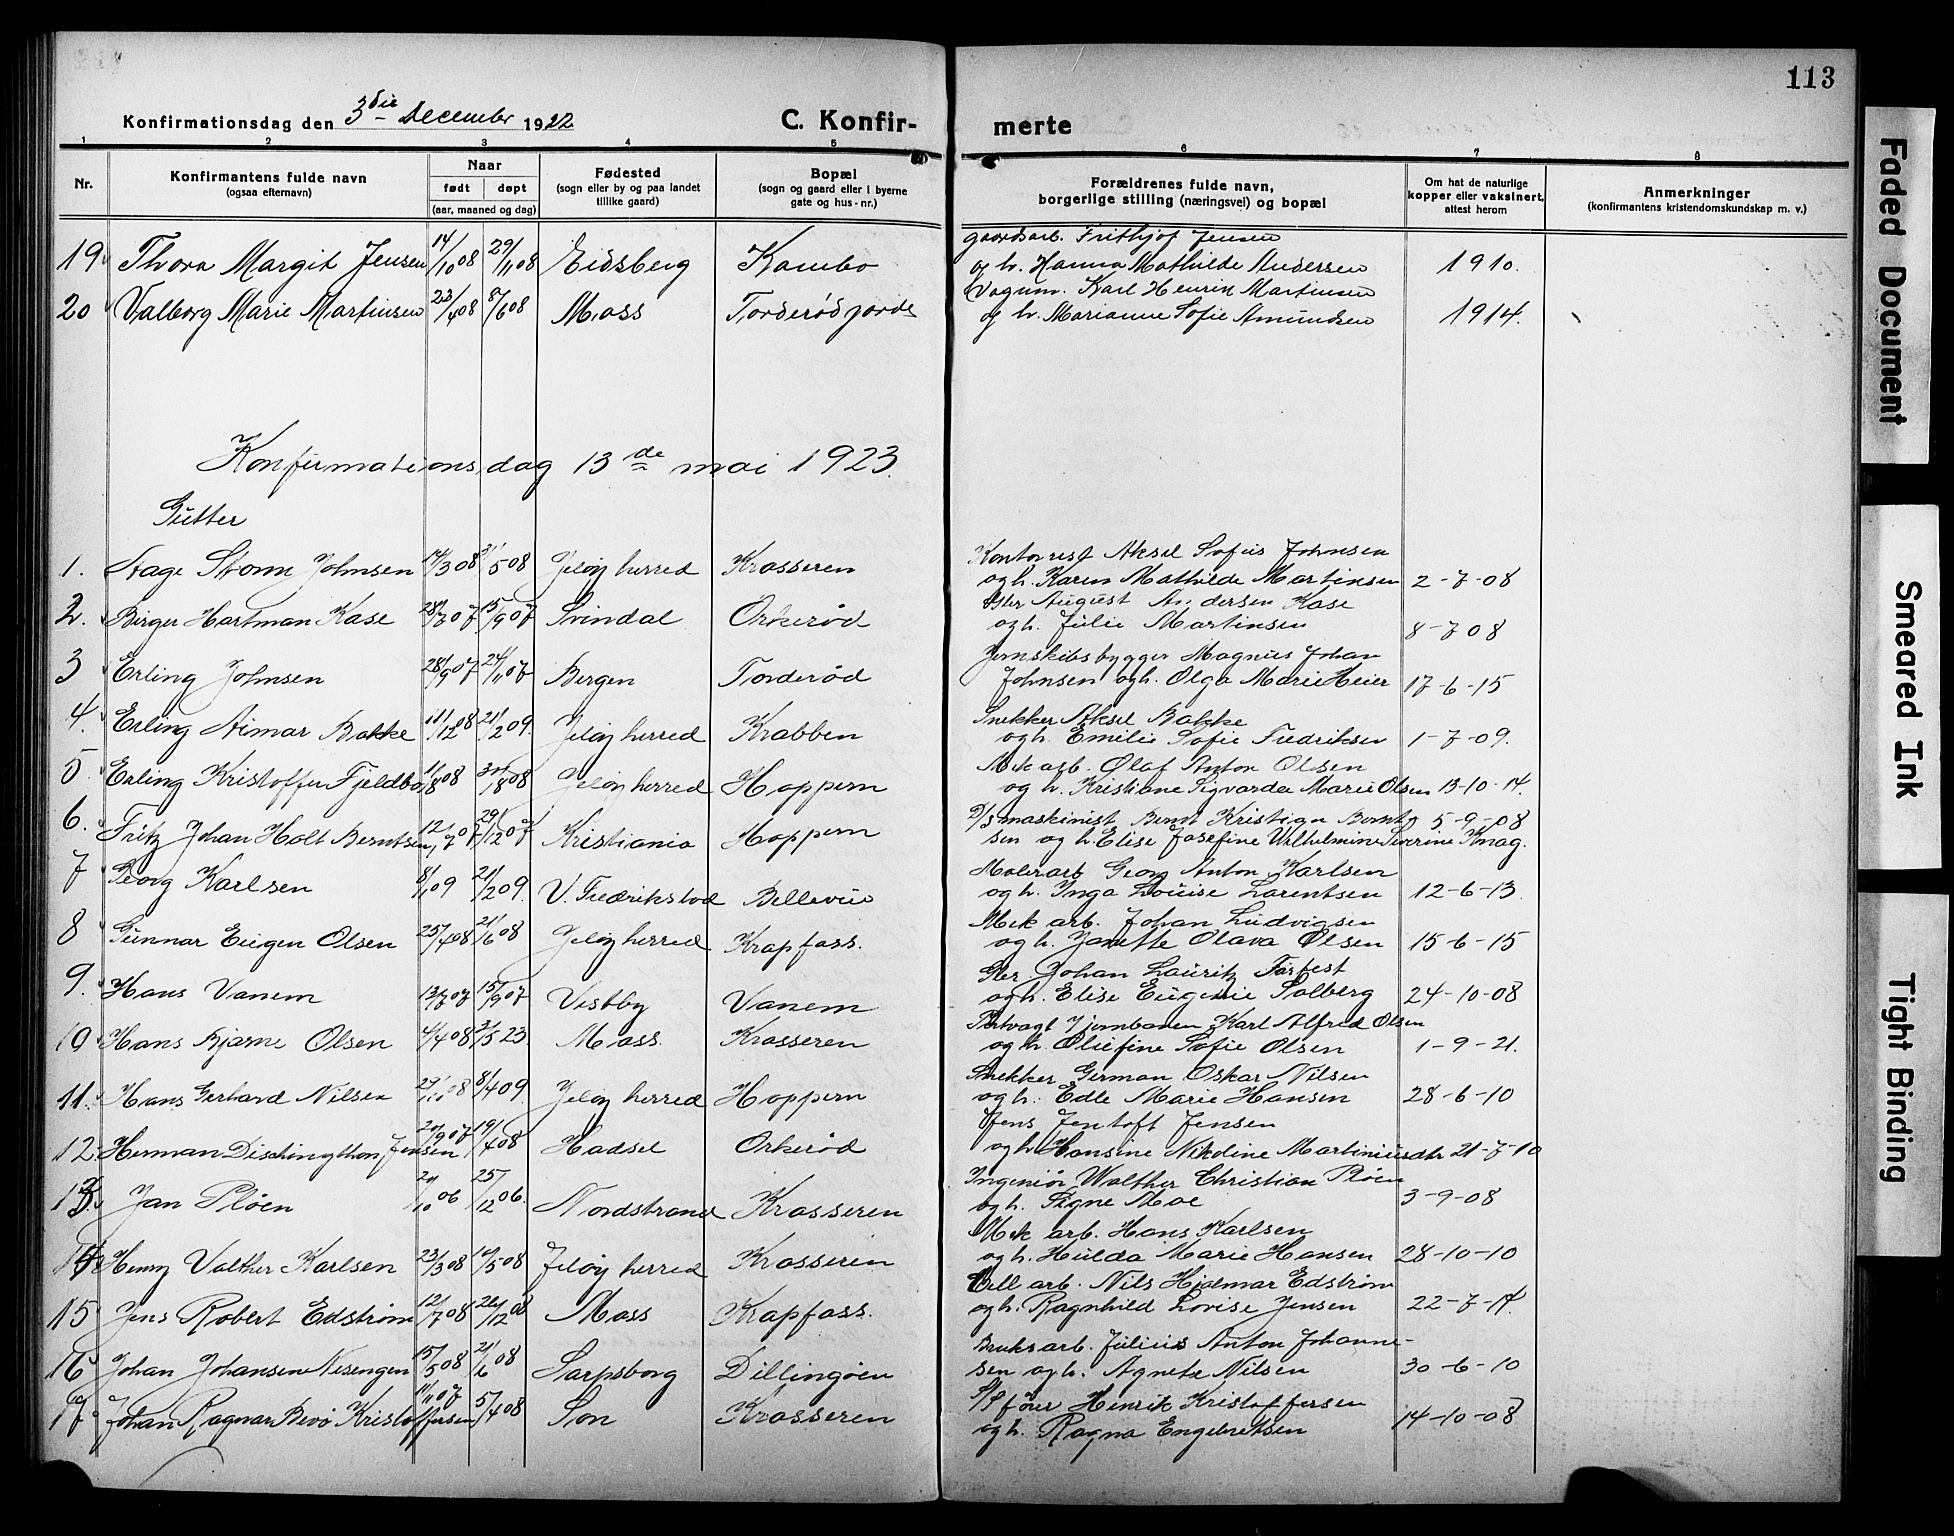 113
Konfirmationsdag den 3die December 1922
C. Konfir-
merte
1 2 3 4 5 6 7 8
Nr.
Konfirmantens fulde navn
(ogsaa efternavn)
Naar
født døpt
(aar, maaned og dag)
Fødested
(sogn eller by og paa landet
tillike gaard)
Bopæl
(sogn og gaard eller i byerne
gate og hus-nr.)
Forældrenes fulde navn,
borgerlige stilling (næringsvei) og bopæl
Om hat de naturlige
kopper eller vaksinert,
attest herom
Anmerkninger
(konfirmantens kristendomskundskap m. v.)
gaardsarb. Frithjof Jensen
19 Thora Margit Jensen 14/10 08 29/11 08 Eidsberg Kambo og h. Hanna Mathilde Andersen 1910.
Vognm. Karl Henrik Martinsen
20 Valborg Marie Martinsen 23/4 08 8/6 08 Moss Torderød og h. Marianne Sofie Amundsen 1914.
Konfirmationsdag 13de mai 1923.
Gutter
Aksel Sofus Johnsen
1. Aage Storm Johnsen 08 5 08 Jeløy herred Krosseren og h. Karen Mathilde Martinsen 2-7-08
August Andersen Kase
2. Birger Hartman Kase 07 15/9 07 Svindal Orkerød og h. Julie Martinsen 8-7 08
Jernskibsbygger Magnus Johan
3 Erling Johnsen 28/9 07 24/11 07 Bergen Torderød Johnsen og h. Olga Marie Meier 17-6-15
Snekker Aksel Bakke
4. Erling Aimar Bakke 11/12 08 21/2 09. Jeløy herred Krabben og h. Emilie Sofie Fredriksen 1-7-09.
Mek arb. Olaf Anton Olsen
5 Erling Kristoffer Fjeldbo 08 08 Jeløy herred Hoppern og h. Kristiane Sigvarda Marie Olsen 13-10-14.
D/S maskinist Bernt Kristian Bernt 5-9-08
6. Fritz Johan Holt Berntsen 12/7 07 29/12 07 Kristiania Hoppern sen og h. Elise Josefine Wilhelmine Severine Knag.
Malerarb Georg Anton Karlsen
7 Georg Karlsen 8/1 09 21/2 09. V. Fredrikstad Bellevue og h. Inga Louise Larentsen 12-6-13.
Mek arb. Johan Ludvigsen
8 Gunnar Eugen Olsen 25/4 08 21/6 08 Jeløy herred Krapfoss. og h. Janette Olava Olsen 15-6-15
Johan Lauritz
9. Hans Vanem 13/7 07 15/9 07 Vestby Vanem og h. Elise Eugenie Solberg 24-10-08
Karl Alfred Olsen
10 Hans Bjarne Olsen 4/4 08 3/5 23. Moss. Krosseren og h. Oliefine Sofie Olsen 1-9-21.
Snekker German Oskar Nilsen
11. Hans Gerhard Nilsen 08 8/4 09. Jeløy herred Hoppern og h. Edle Marie Hansen 28-6-10
Jens Jentoft Jensen
12. Herman Dischingthon Jensen 07 19/4 08 Hadsel Orkerød og h. Hansine Nikoline Martiniusdtr 21-7-10
Ingeniør Walther Christian Pløen
13. Jan Pløen 06 25/12 06. Nordstrand Krosseren og h. Signe Moe 3-9-08
Mek arb. Hans Karlsen
14 Henry Valther Karlsen 23/3 08 5 08 Jeløy herred Krosseren og h. Hulda Marie Hansen 28-10-10
Cell arb. Nils Hjalmar Edstrøm
15 Jens Robert Edstrøm 12/7 08 26/12 08 Moss Krapfoss. og h. Ragnhild Lovise Jensen 22-7-14.
Bruksarb. Julius Anton Johanne-
16 Johan Johansen Nesengen 15/5 08 21/6 08 Sarpsborg Dillingøen sen og h. Agnete Nilsen 30-6-10
S/S fører Henrik Kristoffersen
17 Johan Ragnar Bevø Kristoffersen 07 5/4 08 Son Krosseren og h. Ragna Engebretsen 14-10-08
Faded Document
Smeared Ink
Tight Binding